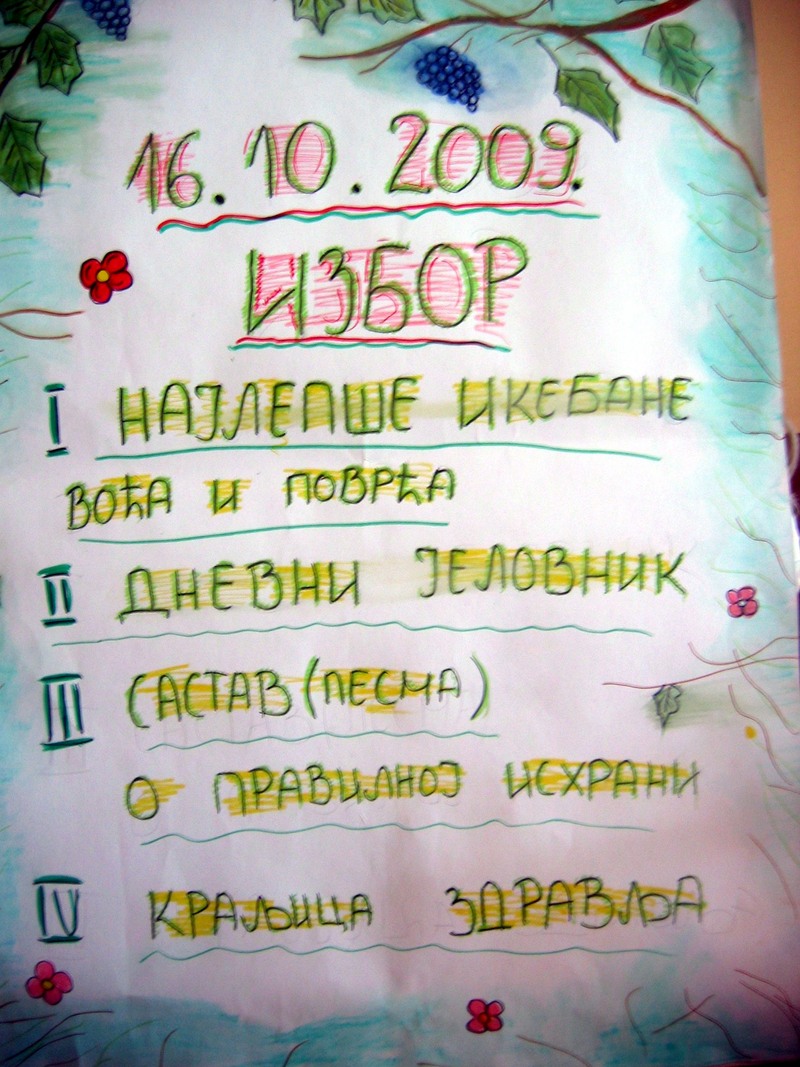 16.10.2009.
ИЗБОР
I НАЈЛЕПШЕ ИКЕБАНЕ
ВОЋА И ПОВРЋА
II ДНЕВНИ ЈЕЛОВНИК
III САСТАВ (ПЕСМА)
О ПРАВИЛНОЈ ИСХРАНИ
IV КРАЉИЦА ЗДРАВЉА